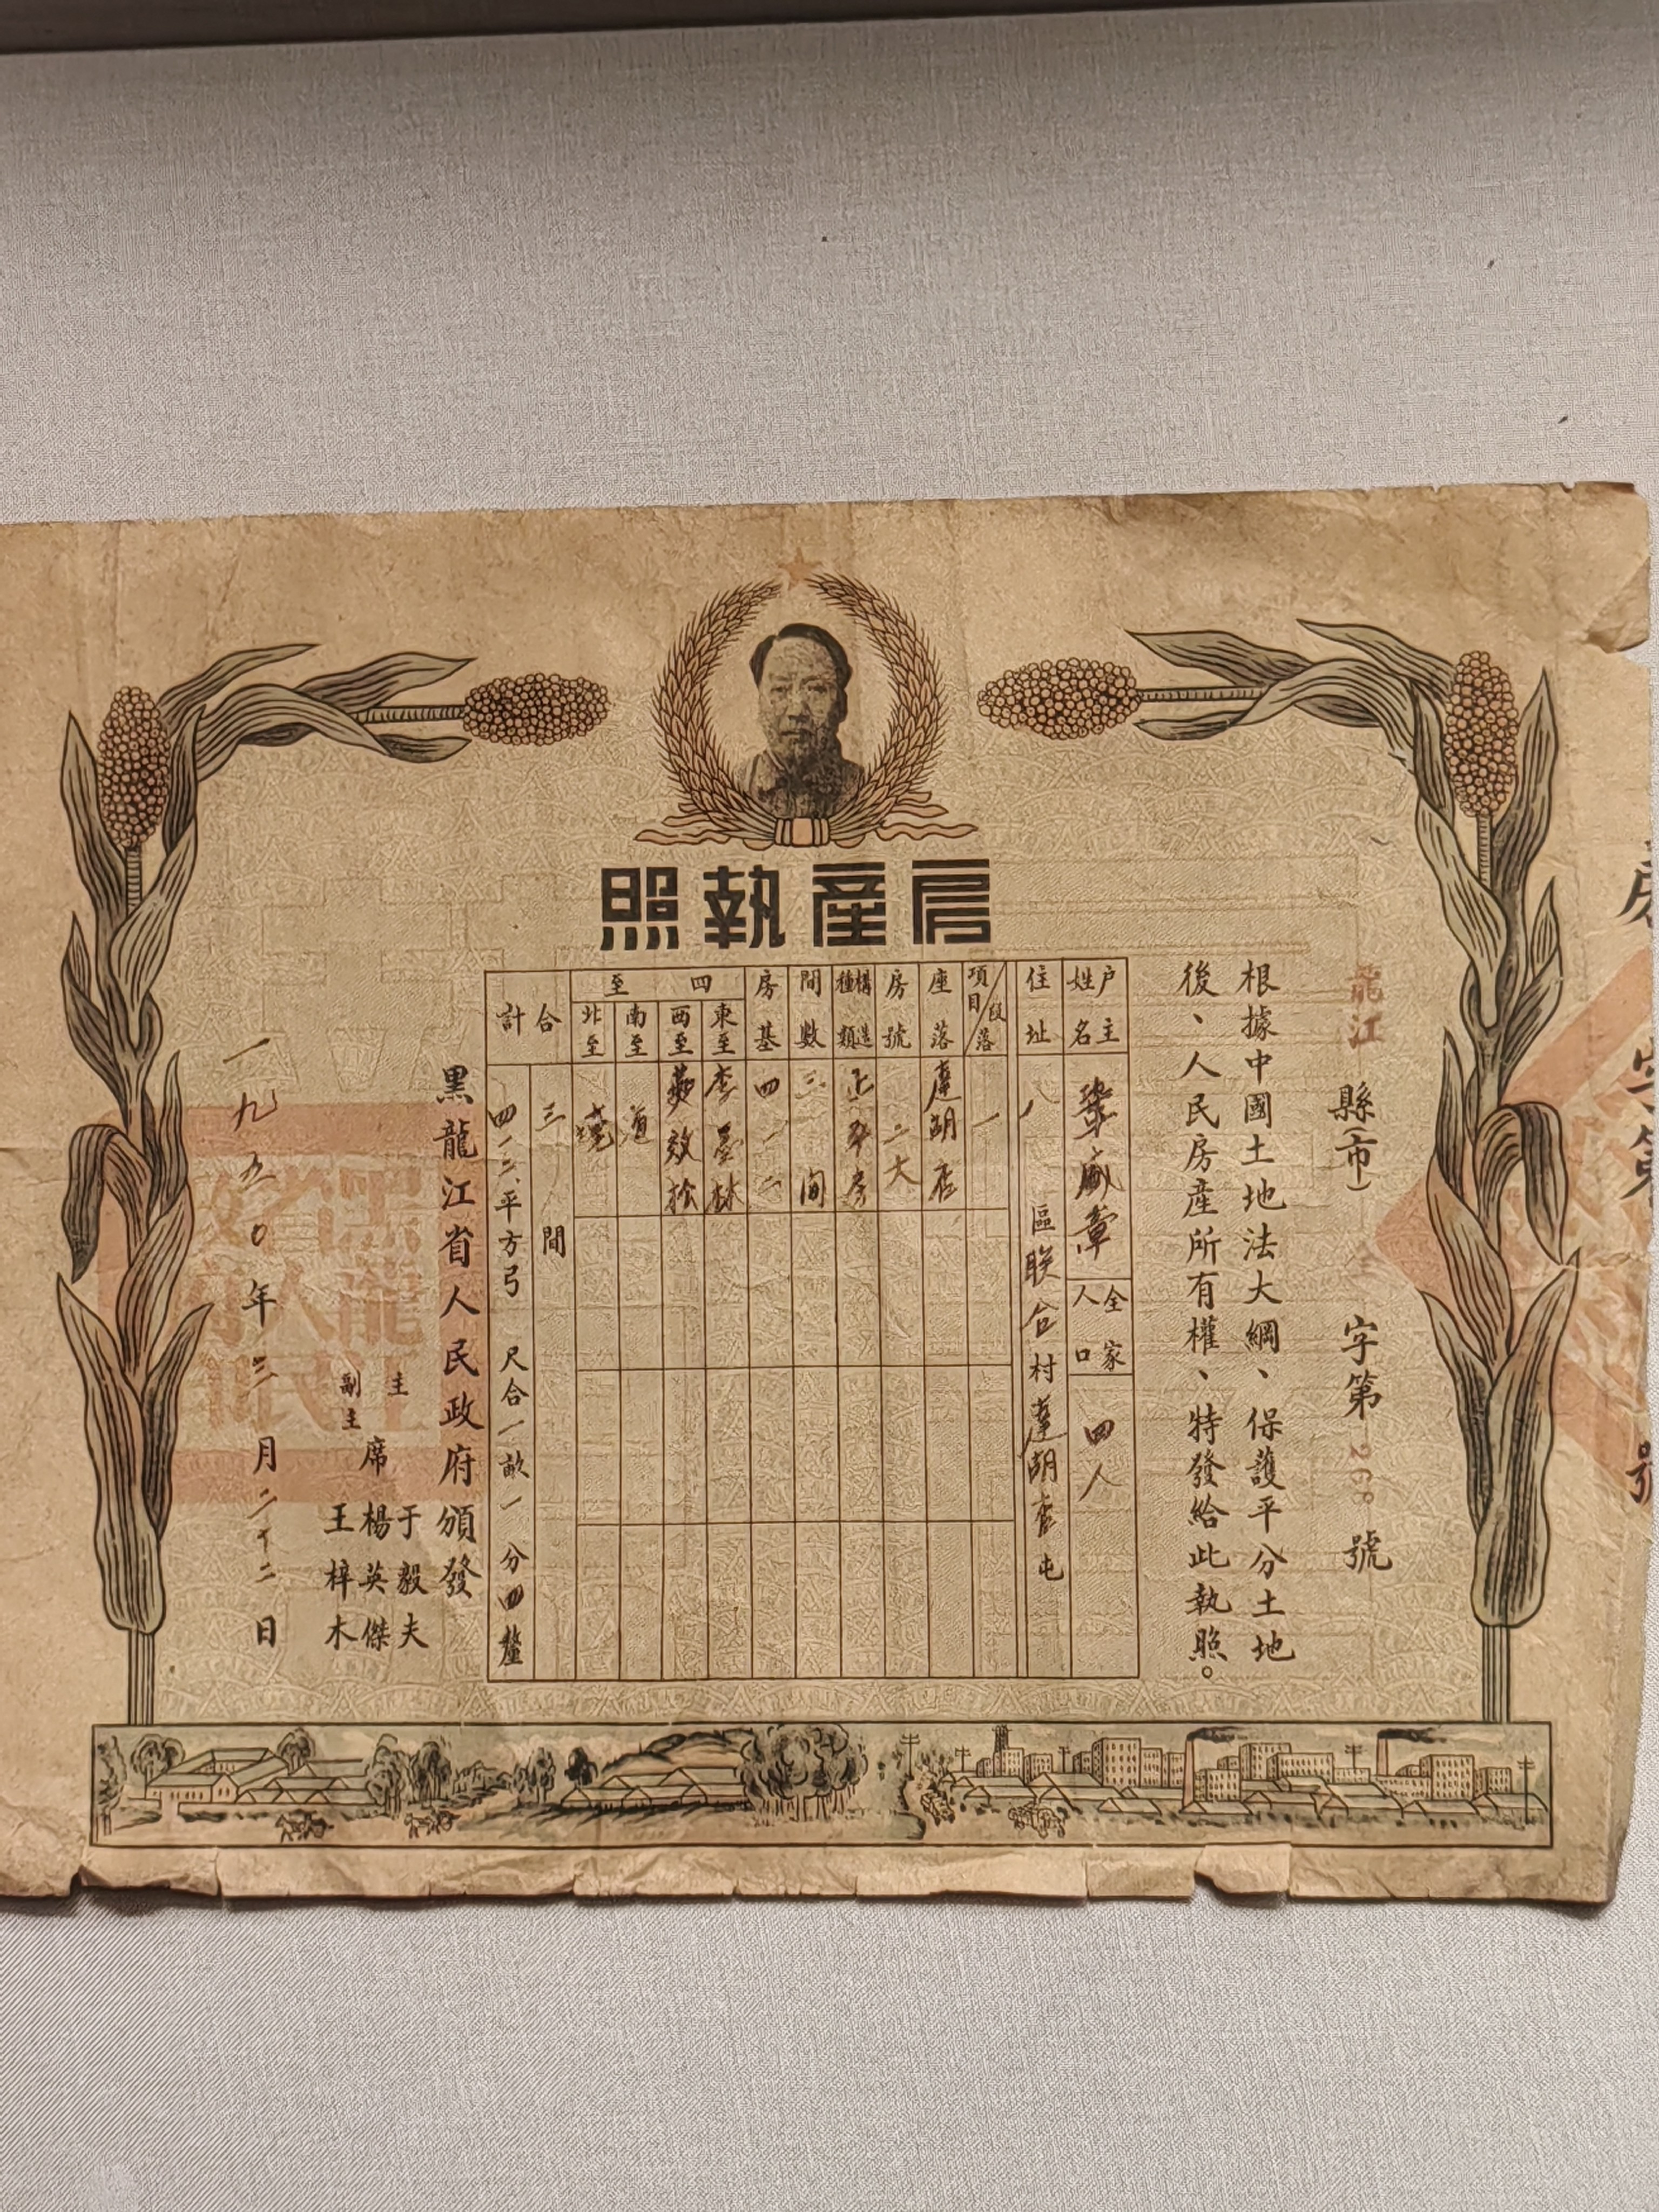 房產執照
龍江縣(市)字第268號
根據中國土地法大綱、保護平分土地
後、人民房產所有權、特發給此執照。
戶主姓名
全家人口 四人
住址 八區聯合村達胡店屯
項目 段落 一
座落 達胡店
房號 二六
構造種類 正平房
間數 三間
房基 四一二
四至
東至 李
西至 效松
南至 道
北至 壕
合計
三間
四一二、平方弓 尺合一畝一分四釐
黑龍江省人民政府頒發
主席 于毅夫
副主席 楊英傑
王梓木
一九五〇年三月二十二日
字第
號